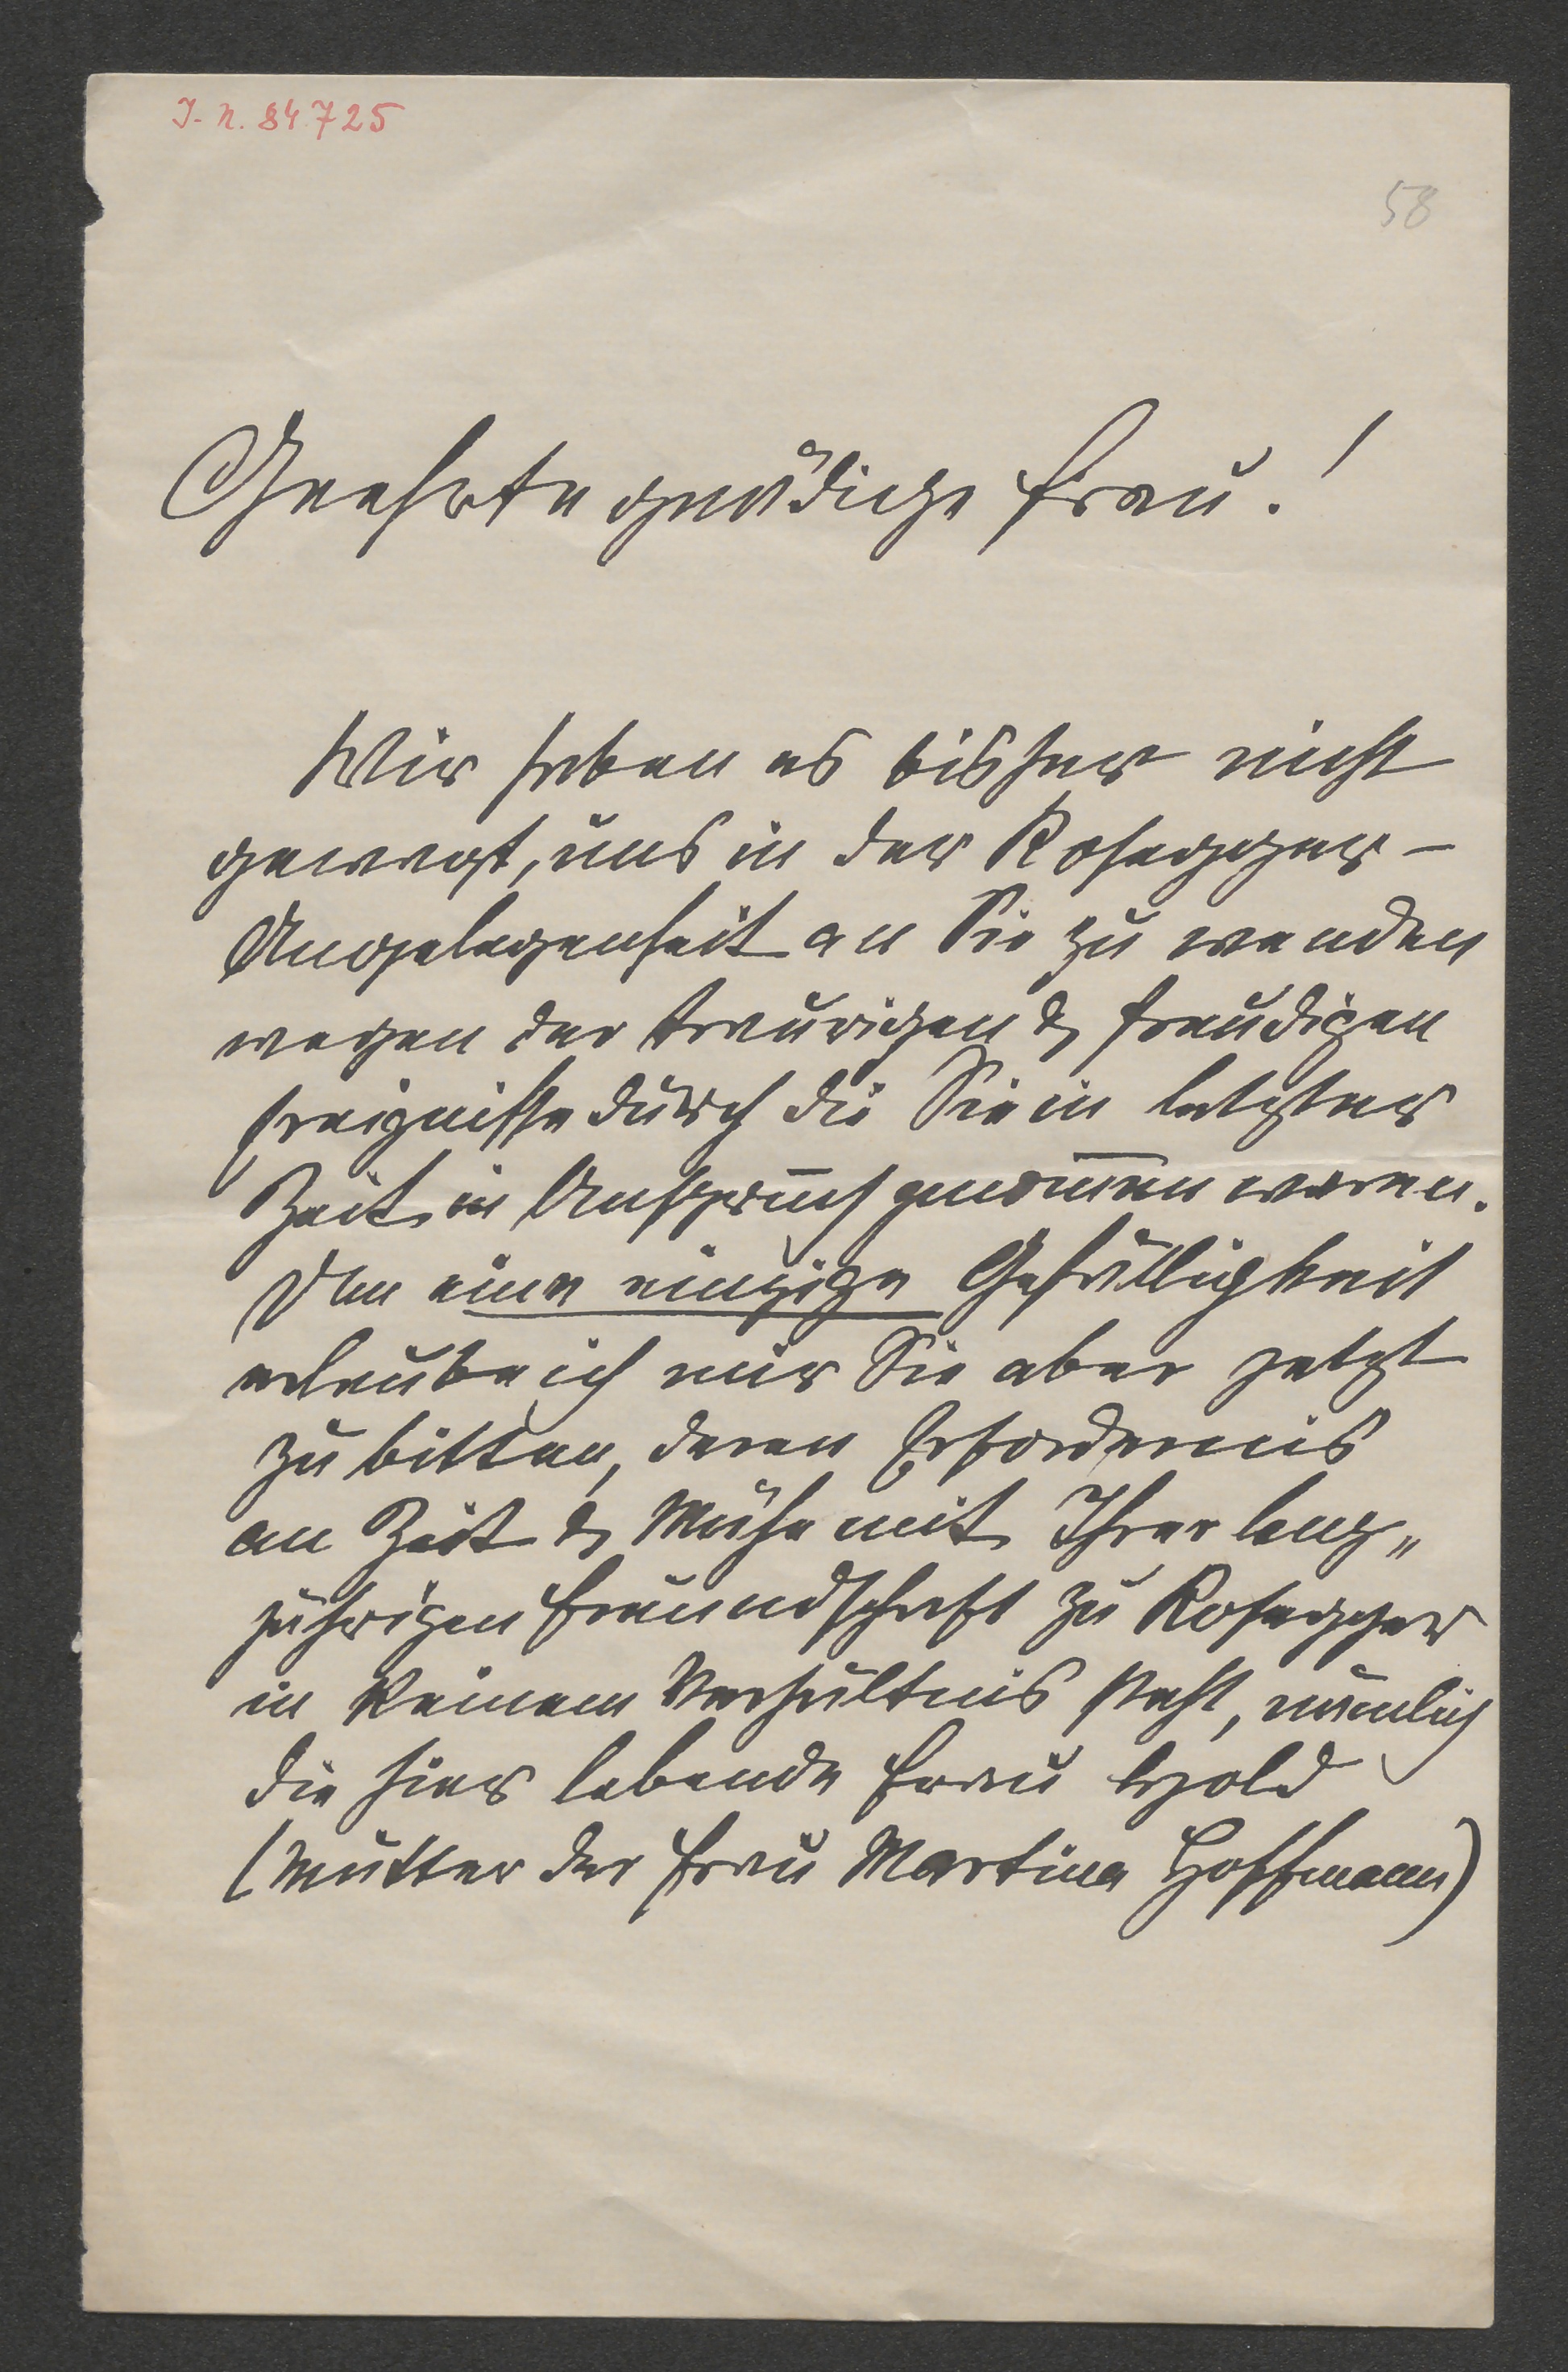 I. N. 84.725
58
Geehrte gnädige Frau!
Wir haben es bisher nicht
gewagt, uns in der Rosegger-
Angelegenheit an Sie zu wenden
wegen der traurigen & freudigen
Ereignisse durch die Sie in letzter
Zeit in Anspruch genom̄en waren.
Um eine einzige Gefälligkeit
erlaube ich mir Sie aber jetzt
zu bitten, deren Erfordernis
an Zeit & Mühe mit Ihrer lang„
jährigen Freundschaft zu Rosegger
in keinem Verhältnis steht, nämlich
die hier lebende Frau
(Mutter der Frau Martina Hoffmann)